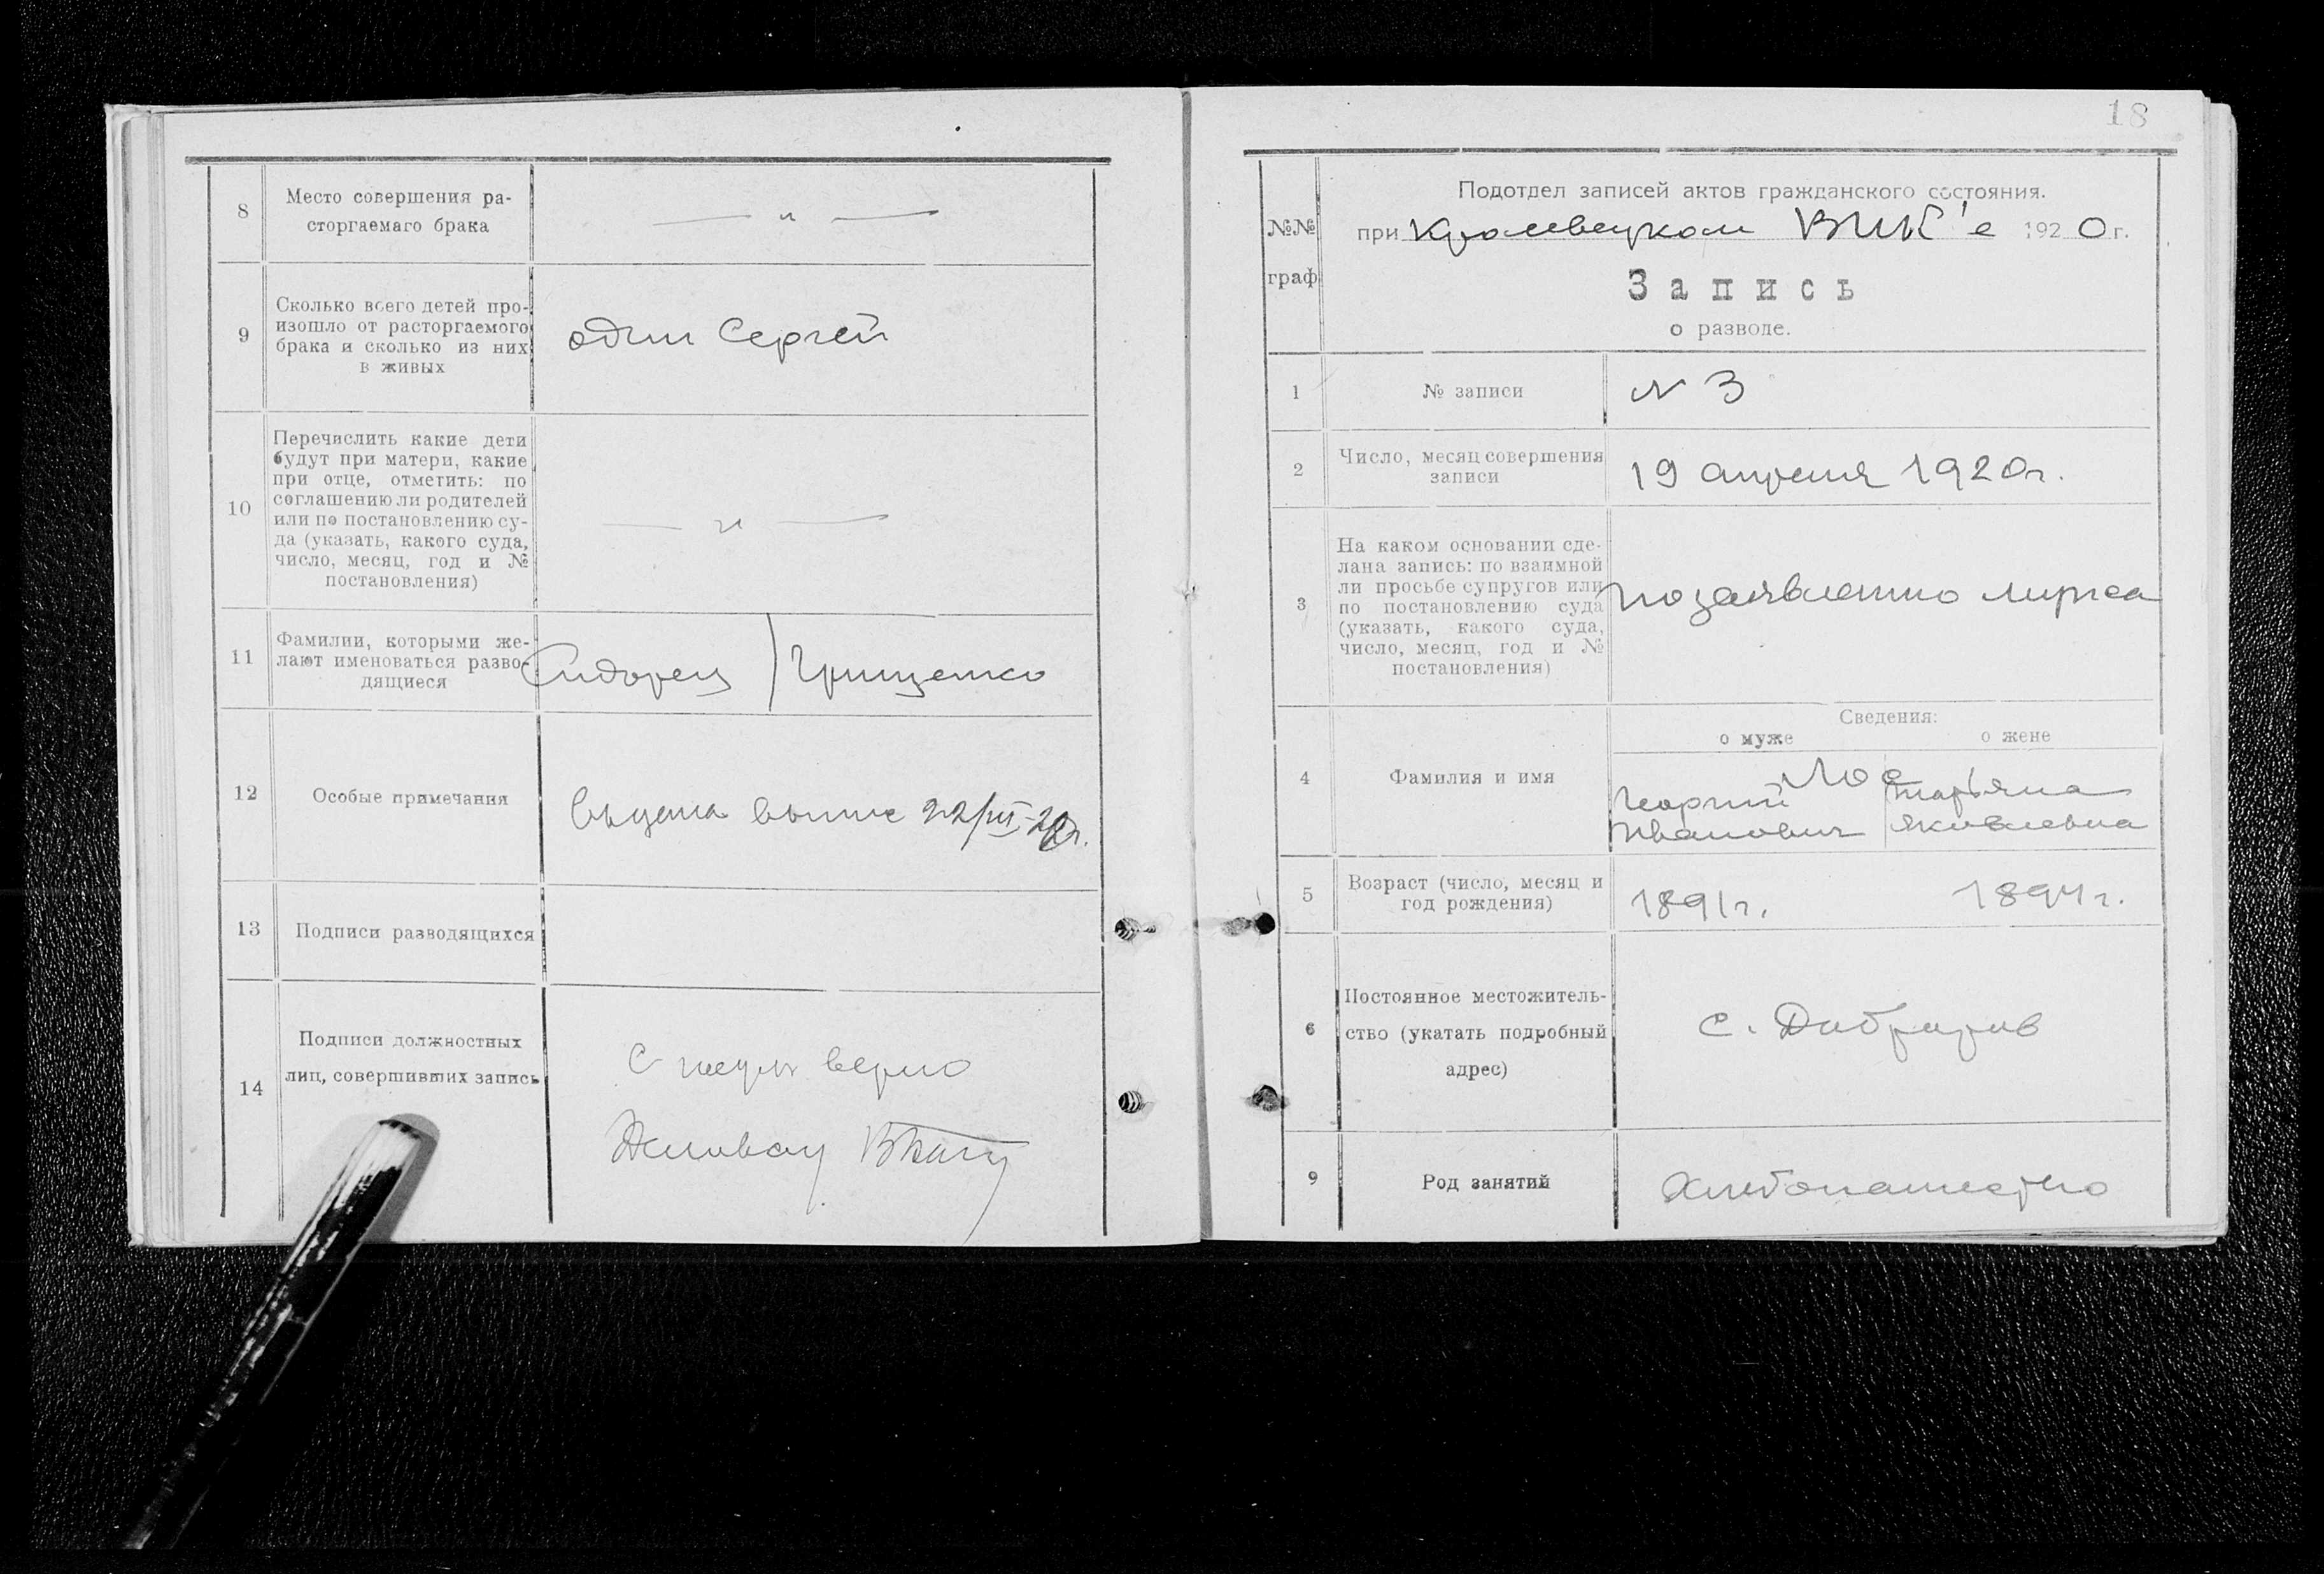 8
Место совершения ра-
сторгаемаго брака
— „ —
9
Сколько всего детей про-
изошло от расторгаемого
брака и сколько из них
в живых
один Сергей
10
Перечислить какие дети
будут при матери, какие
при отце, отметить: по
соглашению ли родителей
или по постановлению су-
да (указать, какого суда,
число, месяц, год и №
постановления)
— „ —
11
Фамилии, которыми же-
лают именоваться разво-
дящиеся
Сидорец / Грищенко
12
Особые примечания
22/III-
13
Подписи разводящихся
14
Подписи должностных
лиц, совершивших запись
С верно
18
№№
граф
Подотдел записей актов гражданского состояния.
при Кролевецком ВИК'е 1920 г.
Запись
о разводе.
1
№ записи
N 3
2
Число, месяц совершения
записи
19 апреля 1920 г.
3
На каком основании сде-
лана запись: по взаимной
ли просьбе супругов или
по постановлению суда
(указать, какого суда,
число, месяц, год и №
постановления)
по заявлению мужа
4
Фамилия и имя
Сведения:
о муже
о жене
Георгий
Иванович
Татьяна
Яковлевна
5
Возраст (число, месяц и
год рождения)
1891 г.
1894 г.
6
Постоянное местожитель-
ство (укатать подробный
адрес)
с.
9
Род занятий